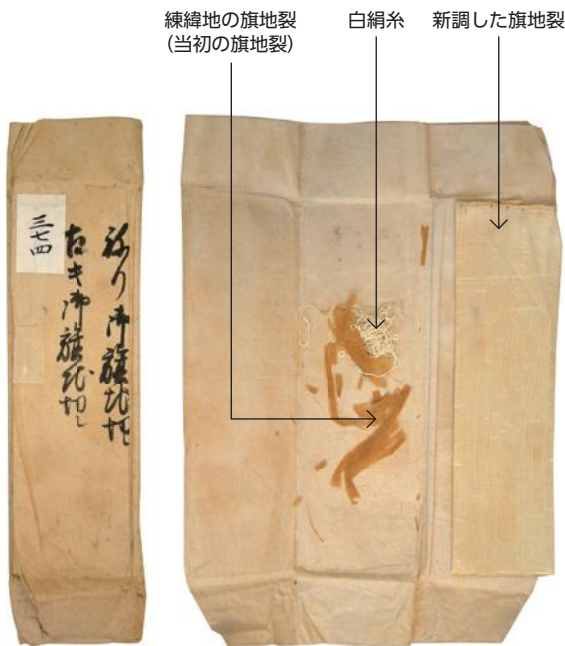 練緯地の旗地裂
(当初の旗地裂)
白絹糸
新調した旗地裂
三七四
ねり御旗地切
古キ御旗地切